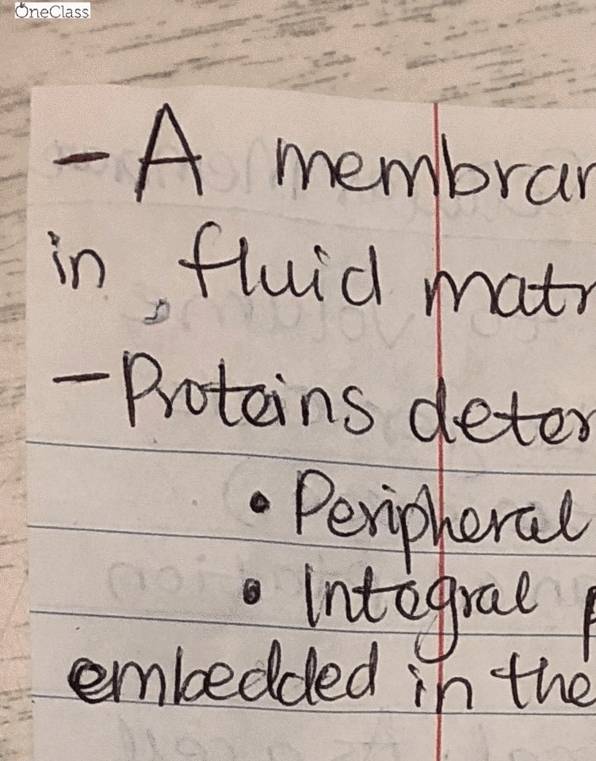 OneClass
- A membran
in fluid matr
- Proteins deter
• Peripheral
• Integral p
embedded in the